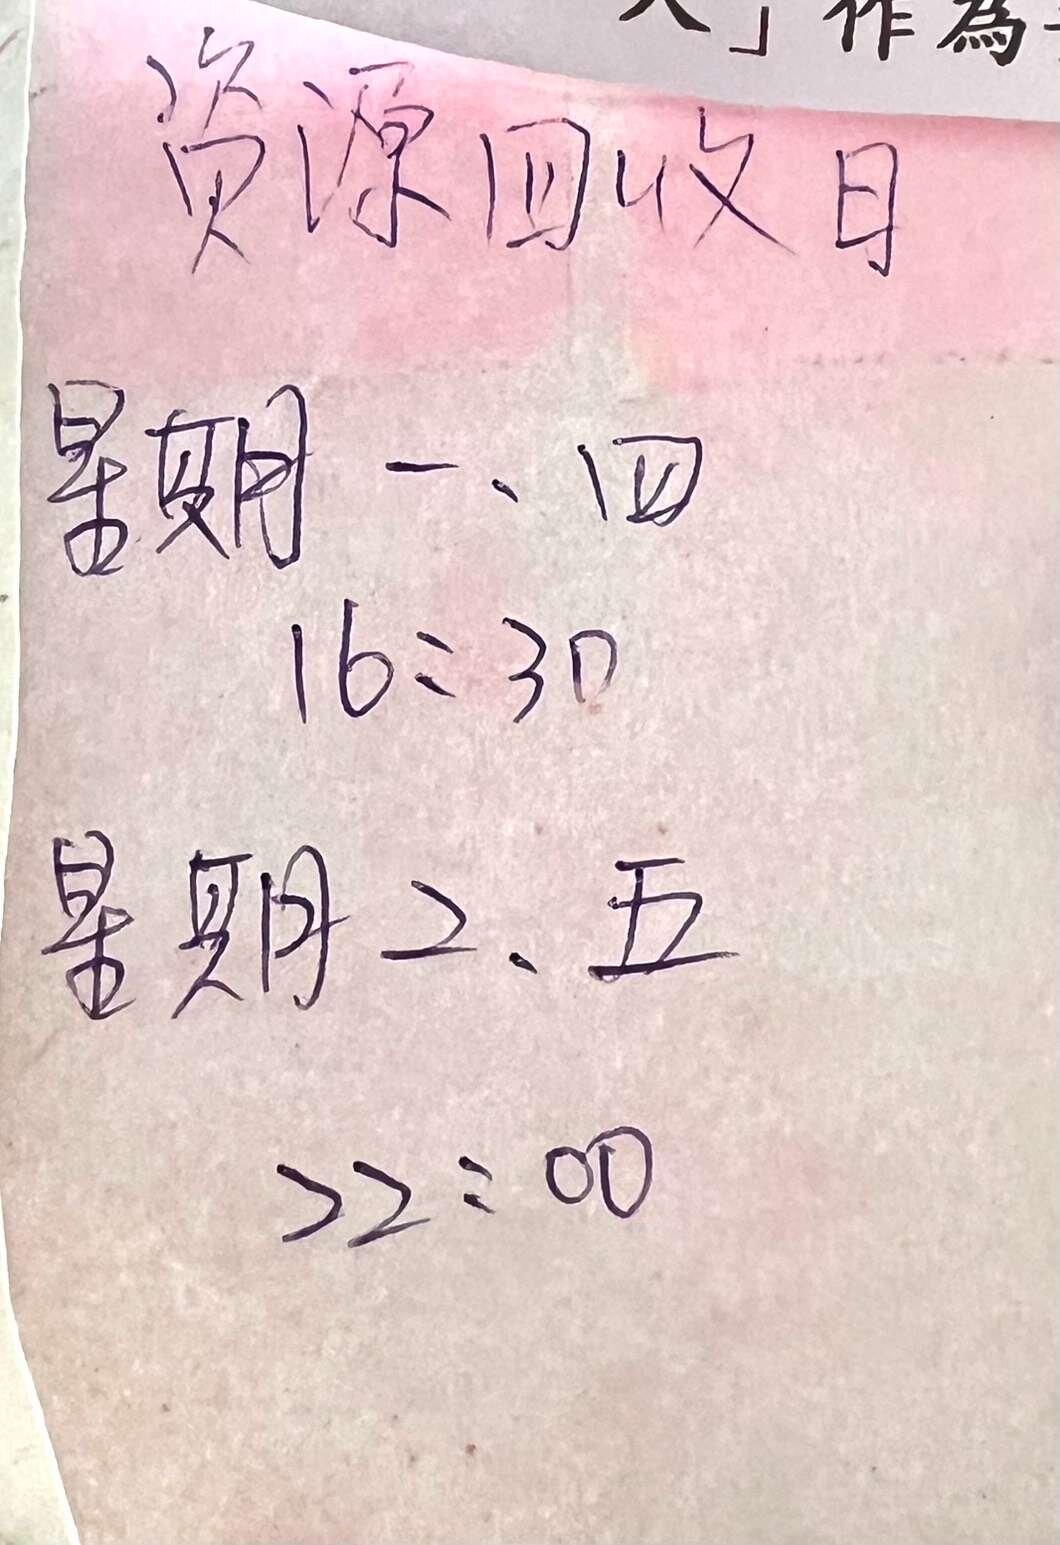 」作為
資源回收日
星期一、四
16:30
星期二、五
22:00